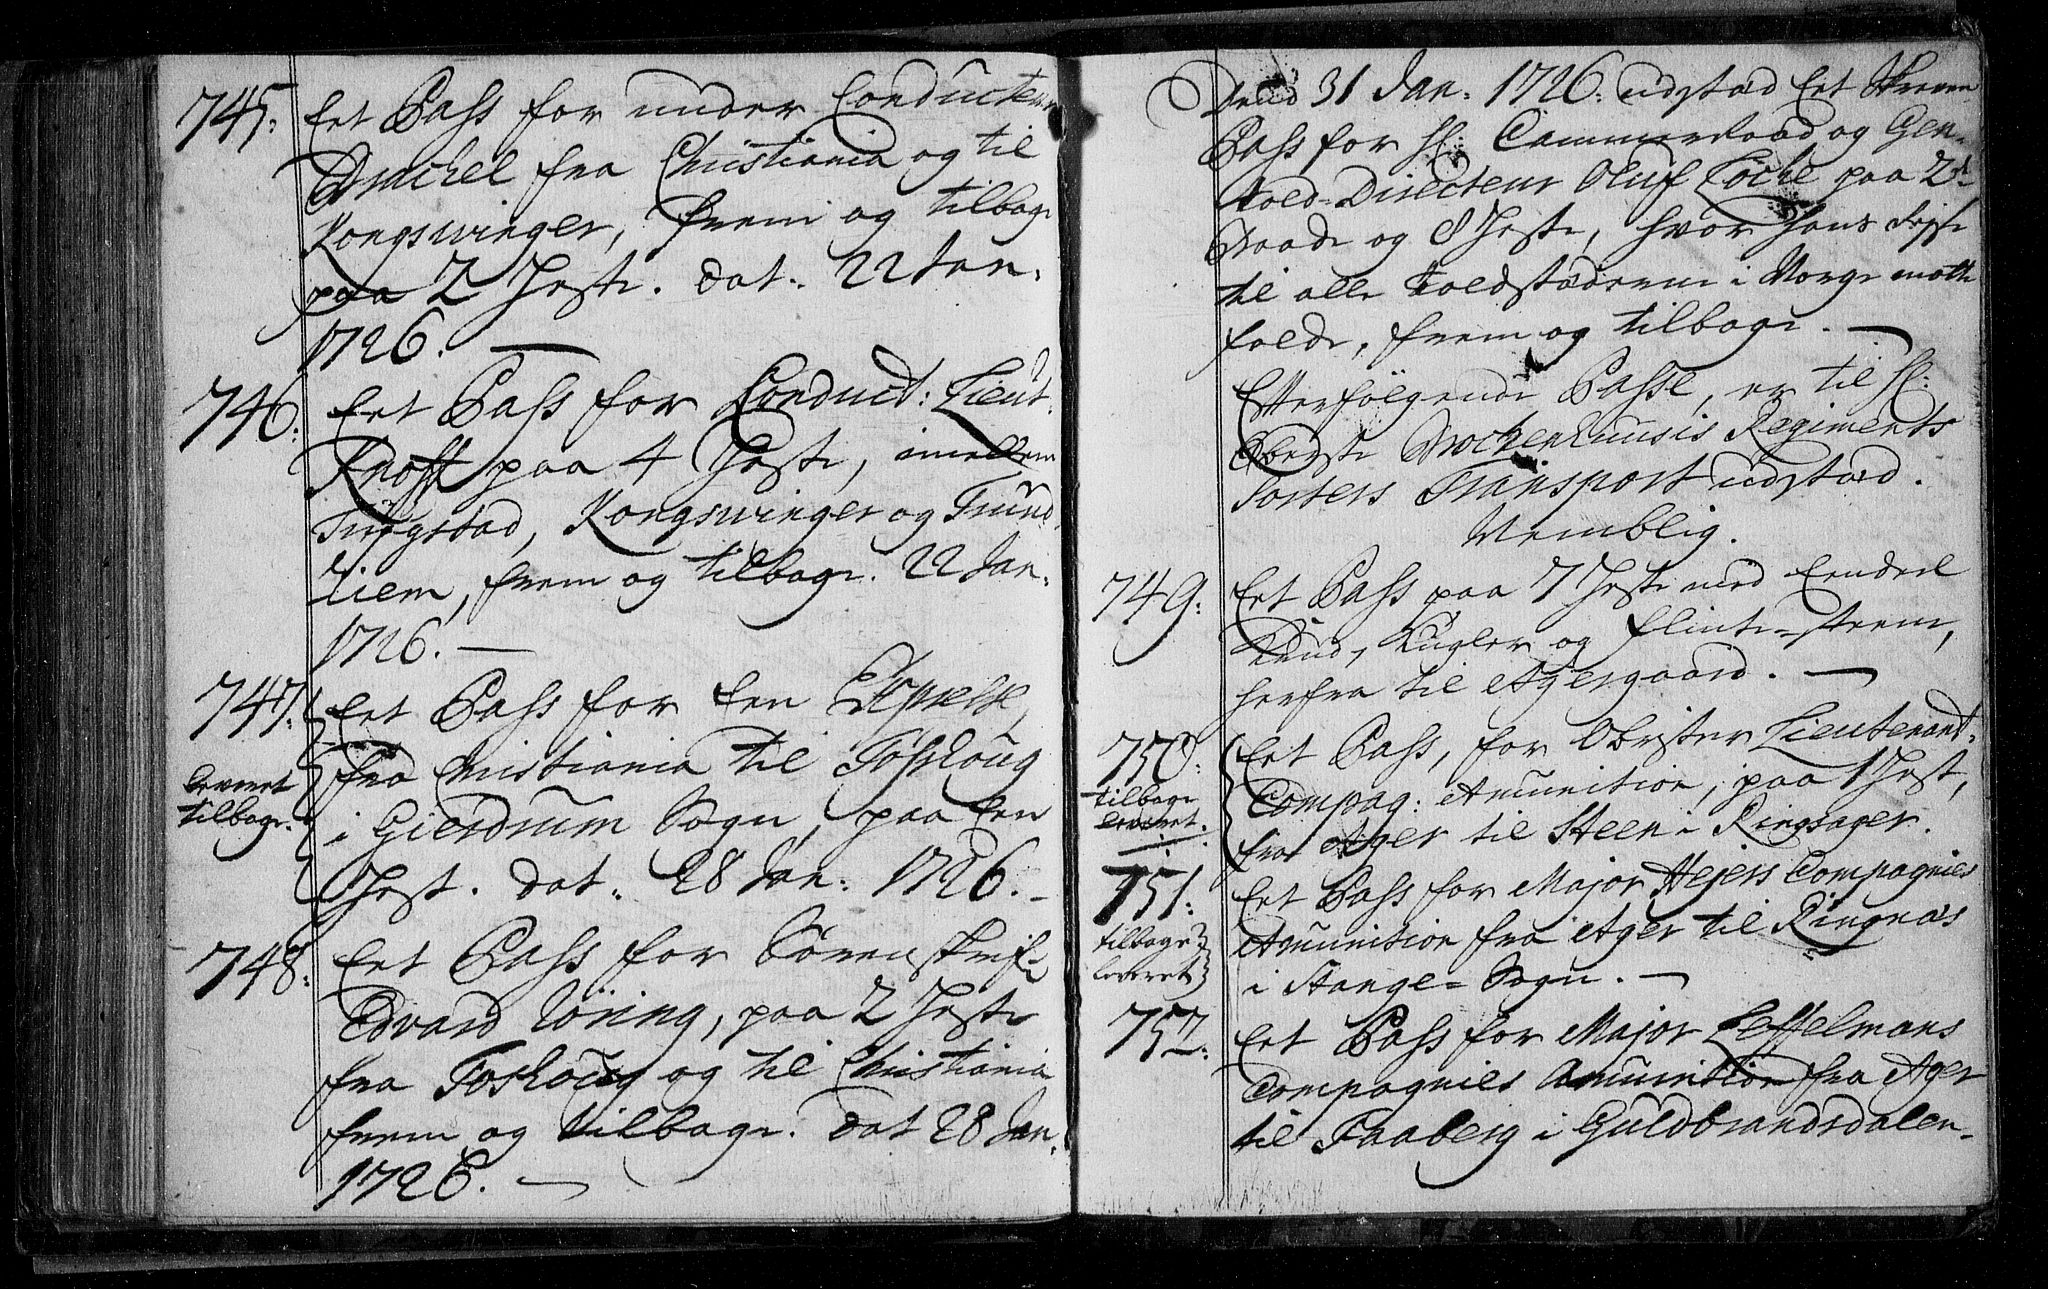 745: Eet Pass for under Conducteur
Druckel fra Christiania og til
Kongswinger, frem og tilbage
paa 2 Heste. dat. 22 Jan.
1726. —
746: Eet Pass for Conduct: Lieut:
Knoff paa 4 Heste, imellem
Trygstad, Kongswinger og Trund
hiem, frem og tilbage. 22 Jan.
1726. —
747: Eet Pass for Een Expresse,
fra Christiania til Foshoug
leveret
tilbage.
i Gierdrum Sogn, paa Een
Hest. dat. 28 Jan: 1726. –
748: Eet Pass for Sörenskrif=
Edvard Röring, paa 2 Heste
fra Foshoug og til Christiania
frem og tilbage. dat 28 Jan.
1726. —
Dend 31 Jan: 1726. udstæd Eet
Pass for H: Cammerraad og Gen=
Told-Directeur Oluf Locke paa 2de
Baade og 8 Heste, hvor hans Rejse
til alle Toldstæderne i Norge motte
falde, frem og tilbage. —
Efterfölgende Passe, er til H:
Oberste Brockenhuusis Regiments
Torters Transport udstæd.
Nemblig.
749: Eet Pass paa 7 Heste med Eendeel
Krud, Kugler og Flinte=steene,
herfra til Agersgaard. —
750: Eet Pass, for Obrister Lieutenant=
Compag: Amunition, paa 1 Hest,
tilbage
leveret.
fra Ager til Steen i Ringsager.
751: Eet Pass for Major Hejers Compagnies
Amunition fra Ager til Ringnæs
tilbage
leveret
i Stange=Sogn. —
752: Eet Pass for Major Leffelmans
Compagnies Amunition fra Ager
til Faaberg i Guldbrandsdalen–